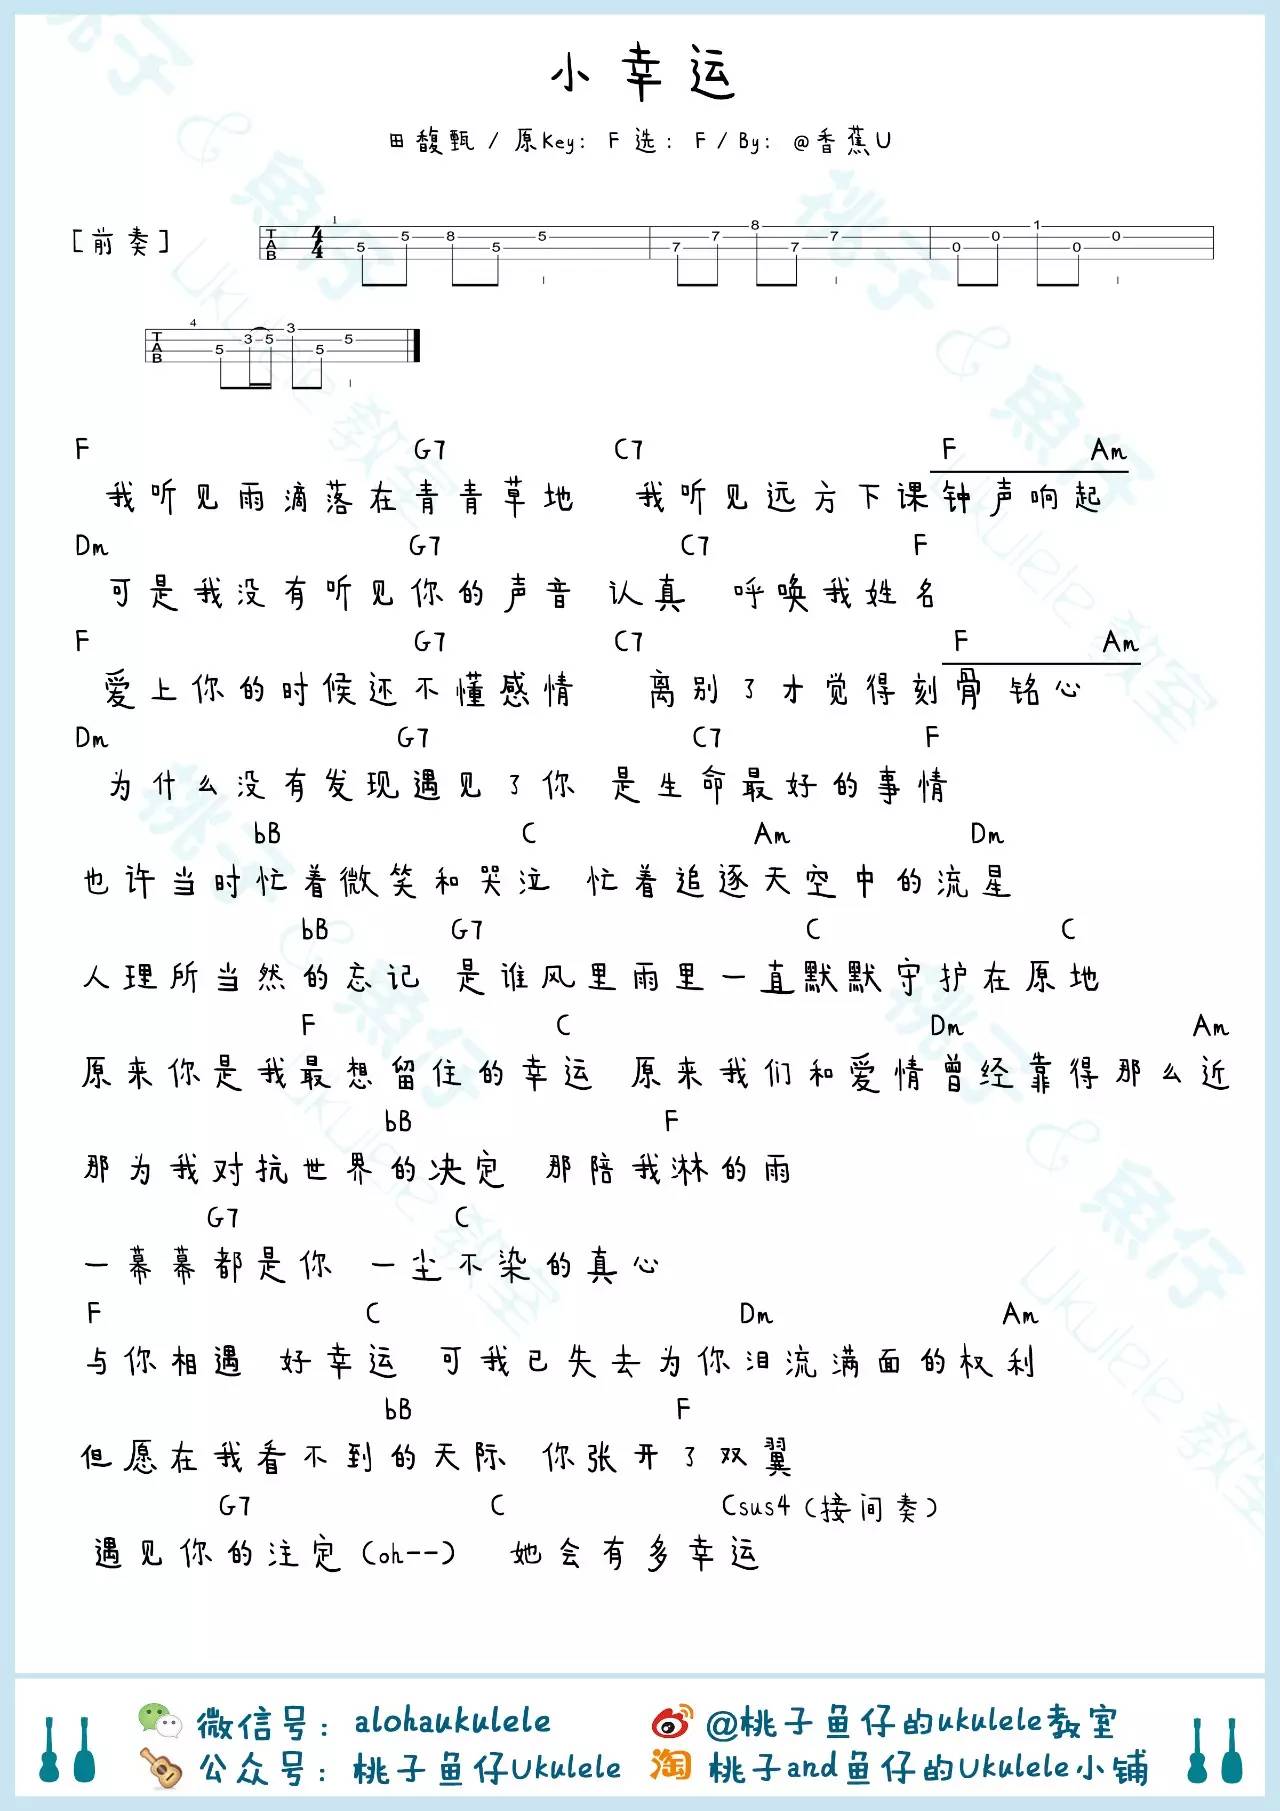 小幸运
田馥甄 / 原Key: F 选: F / By: @香蕉U
[前奏]
1
T A B 4 4 5 5 8 5 5 7 7 8 7 7 0 0 1 0 0
4
T A B 5 3 5 3 5 5
F G7 C7 F Am
我听见雨滴落在青青草地 我听见远方下课钟声响起
Dm G7 C7 F
可是我没有听见你的声音 认真 呼唤我姓名
F G7 C7 F Am
爱上你的时候还不懂感情 离别了才觉得刻骨 铭心
Dm G7 C7 F
为什么没有发现遇见了你 是生命最好的事情
bB C Am Dm
也许当时忙着微笑和哭泣 忙着追逐天空中的流星
bB G7 C C
人理所当然的忘记 是谁风里雨里一直默默守护在原地
F C Dm Am
原来你是我最想留住的幸运 原来我们和爱情曾经靠得那么近
bB F
那为我对抗世界的决定 那陪我淋的雨
G7 C
一幕幕都是你 一尘不染的真心
F C Dm Am
与你相遇 好幸运 可我已失去为你泪流满面的权利
bB F
但愿在我看不到的天际 你张开了双翼
G7 C Csus4 (接间奏)
遇见你的注定 (oh--) 她会有多幸运
微信号: alohaukulele
@桃子鱼仔的ukulele教室
公众号: 桃子鱼仔Ukulele
淘 桃子and鱼仔的Ukulele小铺
桃子&魚仔 Ukulele教室
桃子&魚仔 Ukulele教室
桃子&魚仔 Ukulele教室
桃子&魚仔 Ukulele教室